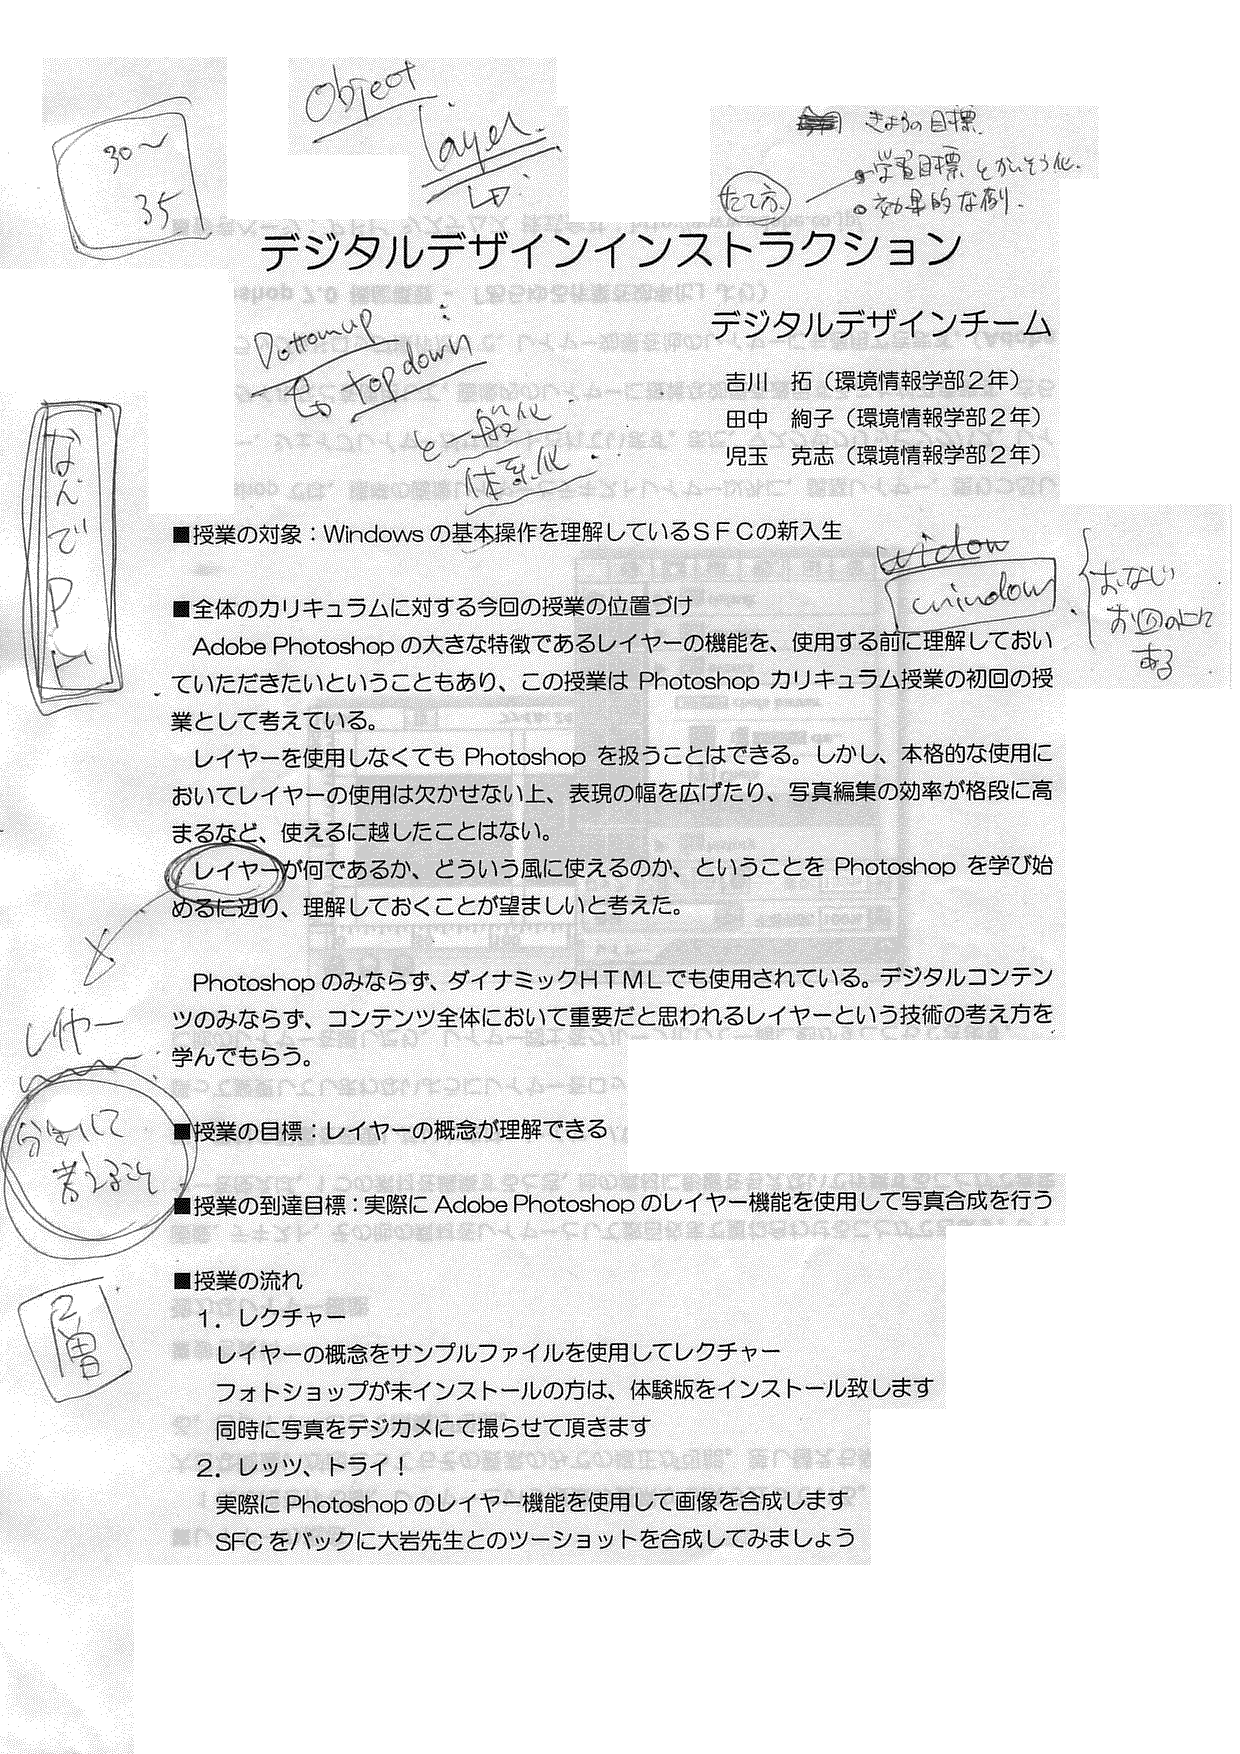 Object
layer.
30～
35
きょうの目標.
たて方.
学習目標とかいそう化.
効果的な例.
デジタルデザインインストラクション
デジタルデザインチーム
Bottomup
topdown
一般化
体系化.
吉川　拓（環境情報学部２年）
田中　絢子（環境情報学部２年）
児玉　克志（環境情報学部２年）
なんで
■授業の対象：Windows の基本操作を理解しているＳＦＣの新入生
widow
window
■全体のカリキュラムに対する今回の授業の位置づけ
Adobe Photoshop の大きな特徴であるレイヤーの機能を、使用する前に理解しておい
ていただきたいということもあり、この授業は Photoshop カリキュラム授業の初回の授
業として考えている。
レイヤーを使用しなくても Photoshop を扱うことはできる。しかし、本格的な使用に
おいてレイヤーの使用は欠かせない上、表現の幅を広げたり、写真編集の効率が格段に高
まるなど、使えるに越したことはない。
レイヤーが何であるか、どういう風に使えるのか、ということを Photoshop を学び始
めるに辺り、理解しておくことが望ましいと考えた。
Photoshop のみならず、ダイナミックＨＴＭＬでも使用されている。デジタルコンテン
ツのみならず、コンテンツ全体において重要だと思われるレイヤーという技術の考え方を
学んでもらう。
レイヤー
分けて
考えること
■授業の目標：レイヤーの概念が理解できる
■授業の到達目標：実際に Adobe Photoshop のレイヤー機能を使用して写真合成を行う
層
■授業の流れ
１．レクチャー
レイヤーの概念をサンプルファイルを使用してレクチャー
フォトショップが未インストールの方は、体験版をインストール致します
同時に写真をデジカメにて撮らせて頂きます
２．レッツ、トライ！
実際に Photoshop のレイヤー機能を使用して画像を合成します
SFC をバックに大岩先生とのツーショットを合成してみましょう